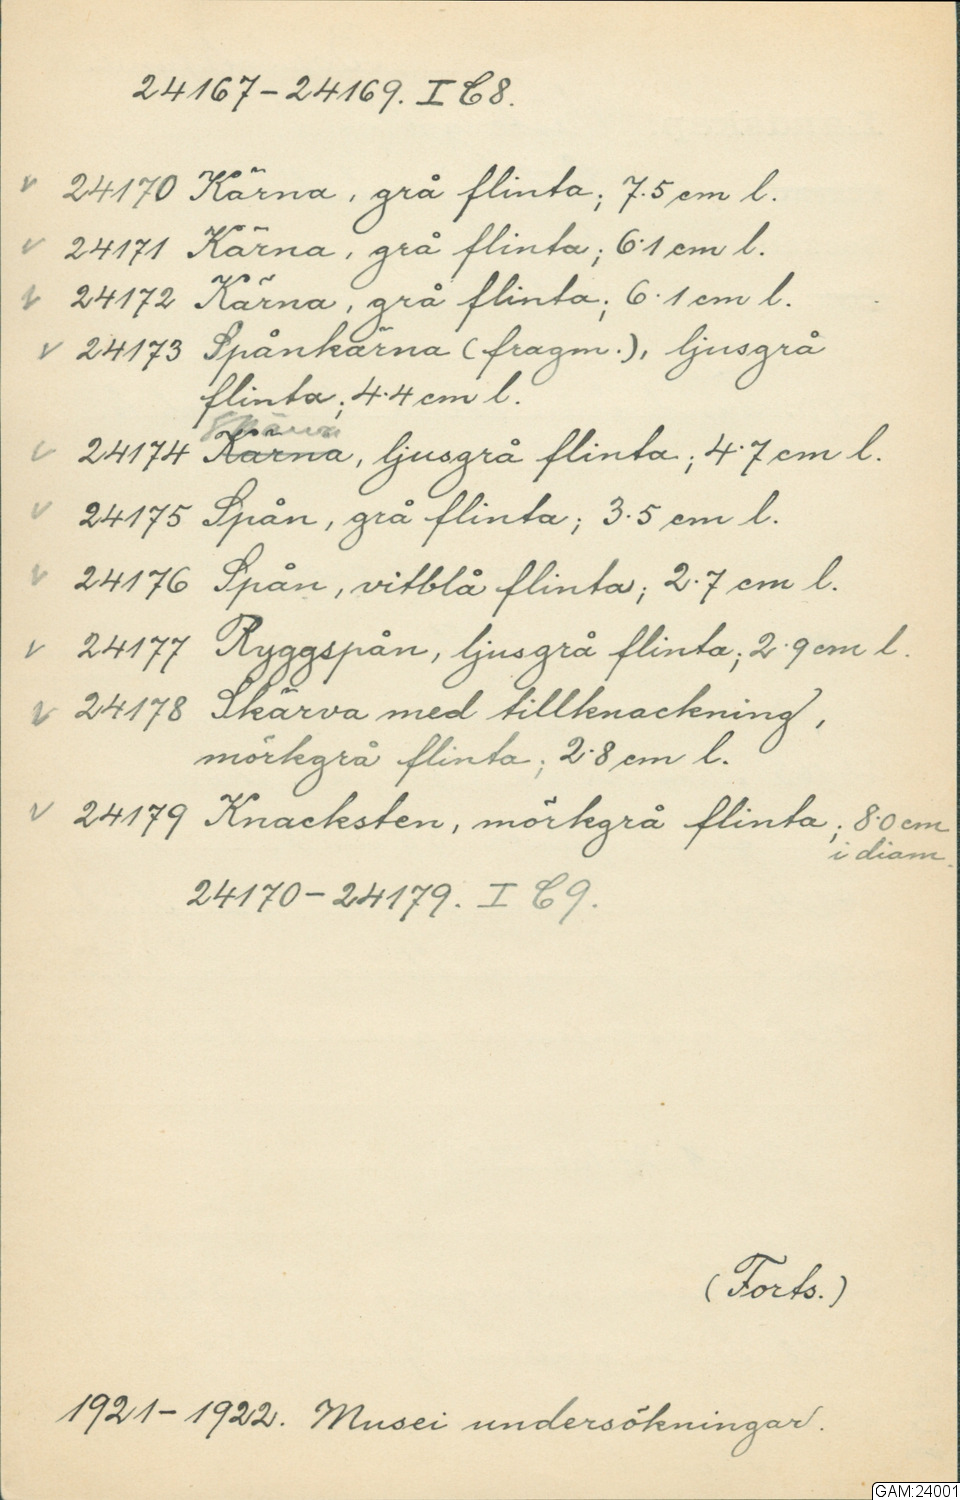 24167-24169. I C8.
v 24170 Kärna, grå flinta; 7.5 cm l.
v 24171 Kärna, grå flinta; 6.1 cm l.
v 24172 Kärna, grå flinta; 6.1 cm l.
v 24173 Spånkärna (fragm.), ljusgrå
flinta; 4.4 cm l.
Skärva
v 24174 Kärna, ljusgrå flinta; 4.7 cm l.
v 24175 Spån, grå flinta; 3.5 cm l.
v 24176 Spån, vitblå flinta; 2.7 cm l.
v 24177 Ryggspån, ljusgrå flinta; 2.9 cm l.
v 24178 Skärva med tillknackning,
mörkgrå flinta; 2.8 cm l.
v 24179 Knacksten, mörkgrå flinta; 8.0 cm
i diam.
24170-24179. I C9.
(Forts.)
1921-1922. Musei undersökningar.
GAM:24001